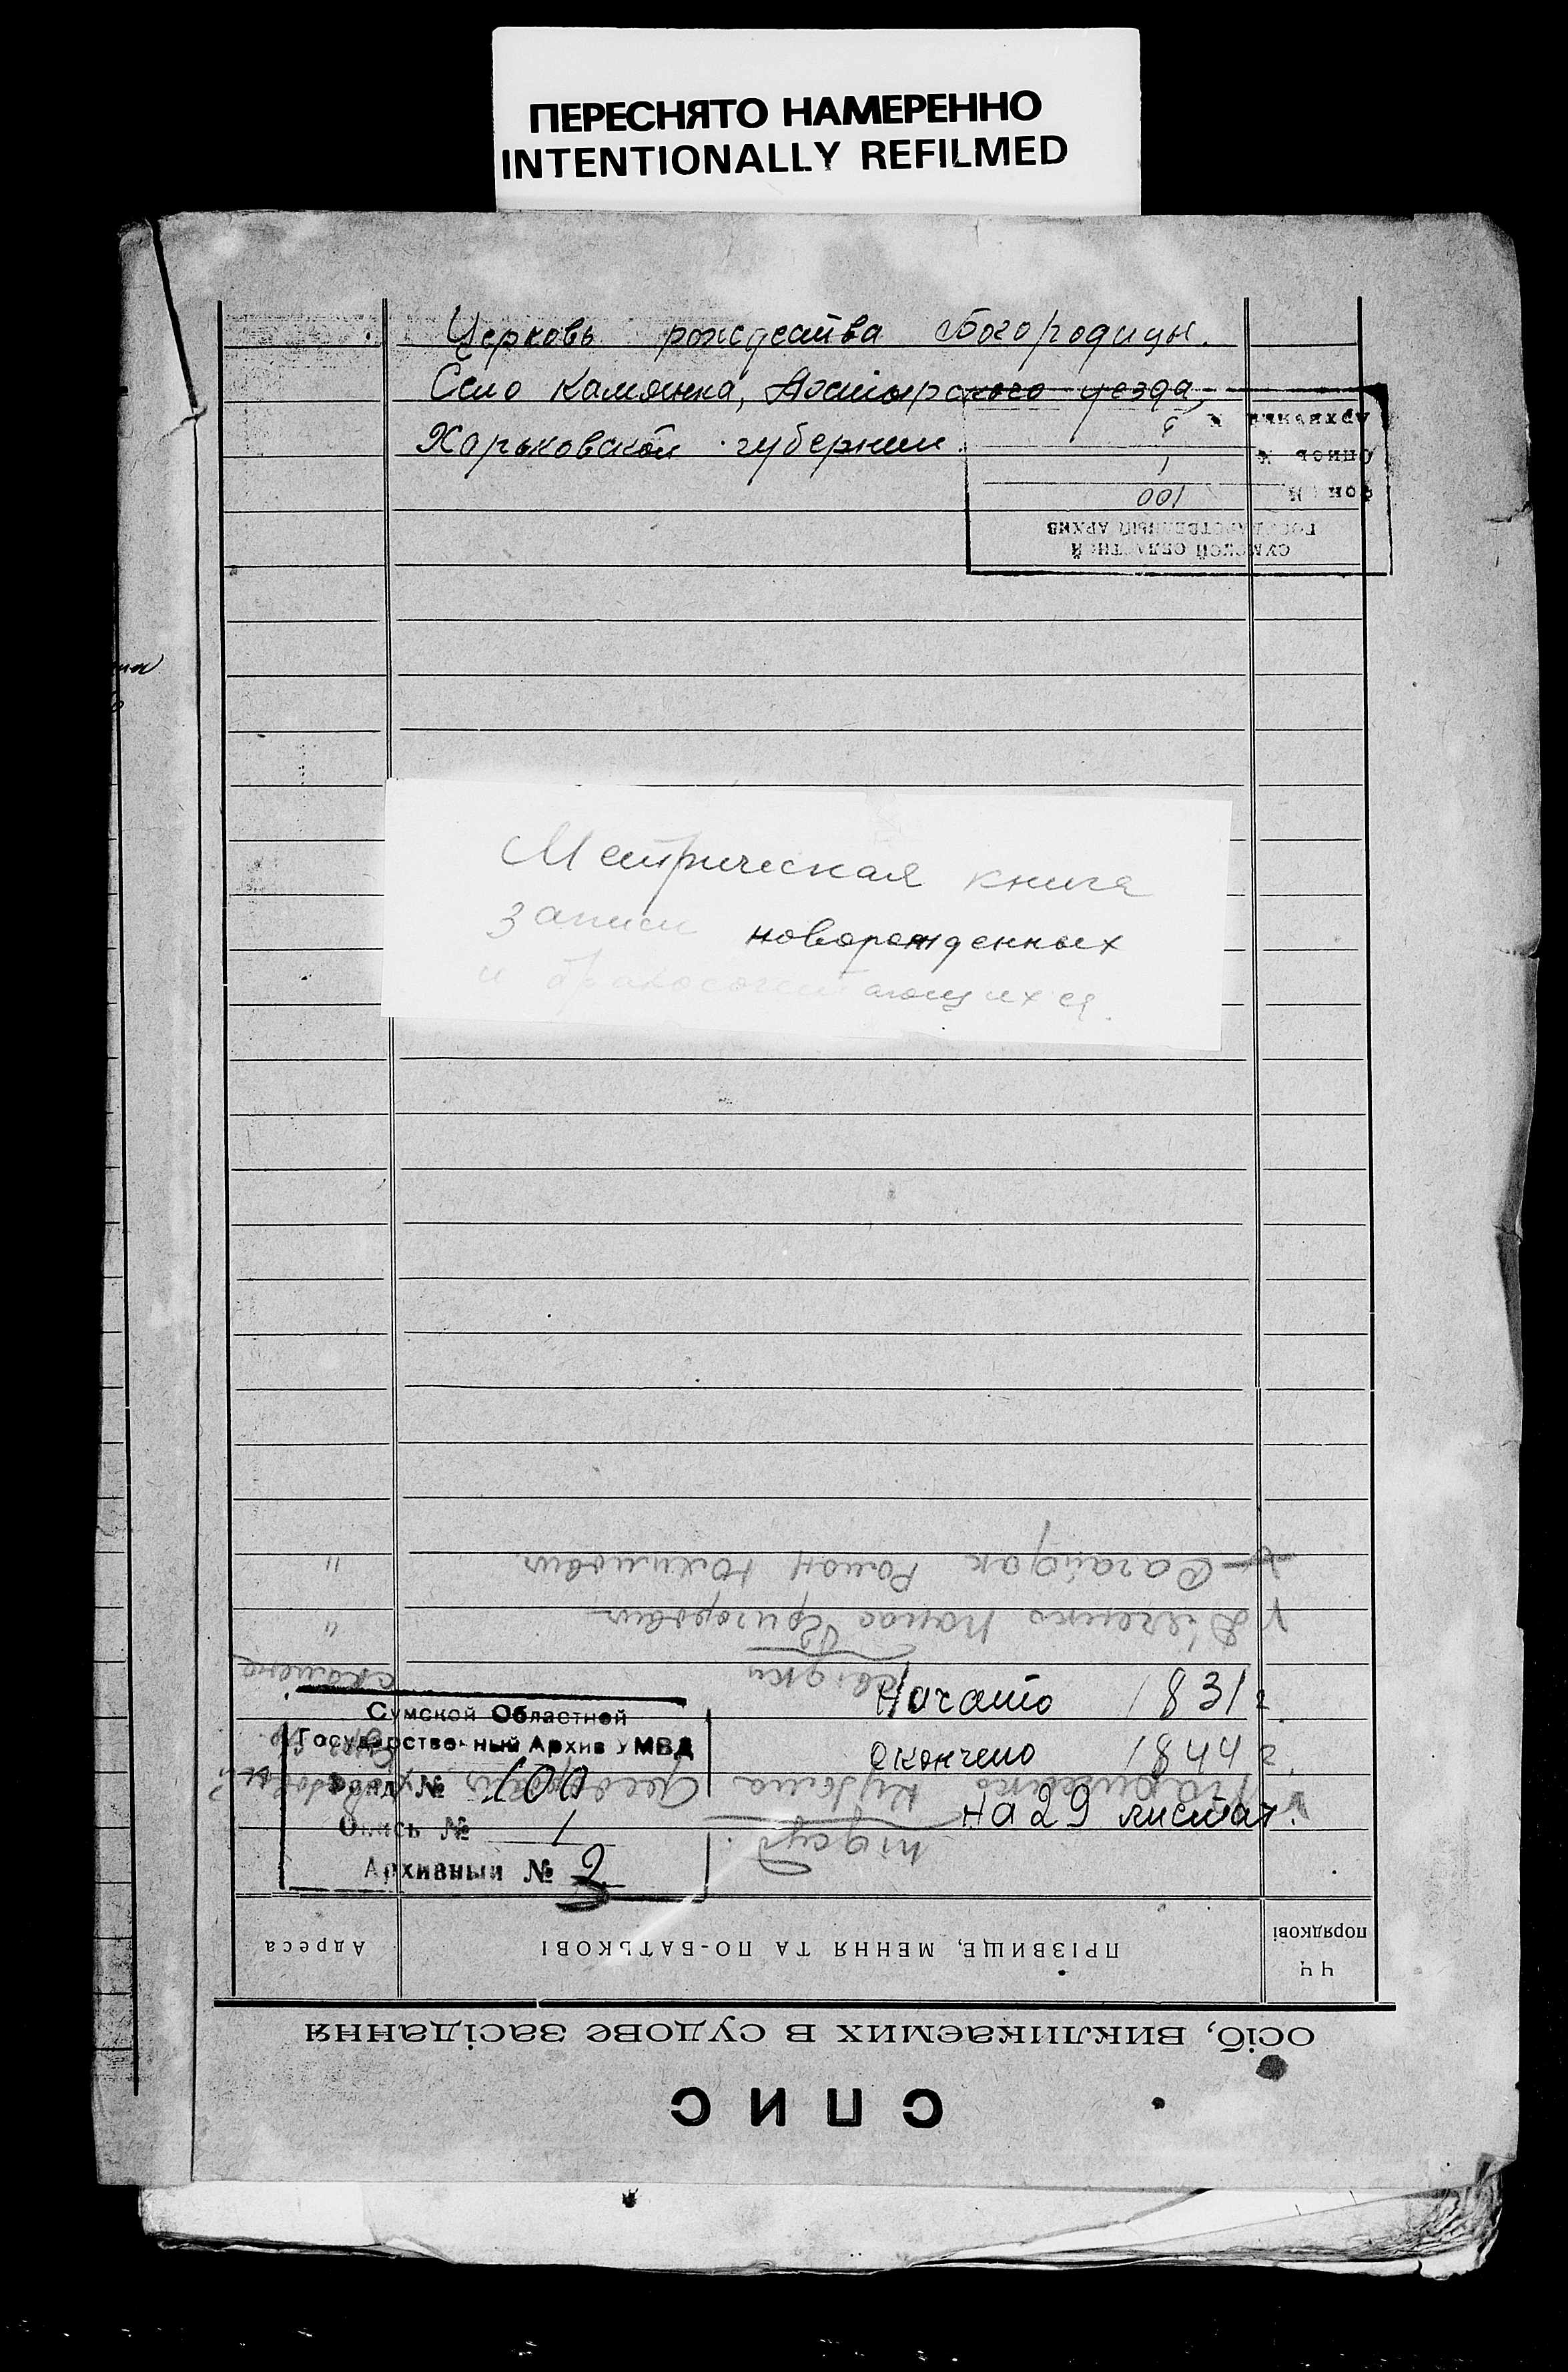 ПЕРЕСНЯТО НАМЕРЕННО
INTENTIONALLY REFILMED
Церковь рождества Богородицы.
Село Камянка, Ахтырского уезда,
Харьковской губернии.
Метрическая книга
записи новорожденных
и бракосочетающихся.
Начато 1831 г.
Окончено 1844 г.
на 29 листах.
Сумской Областной
Государственный Архив УМВД
Фонд № 100
Опись № 1
Архивный № 3
СУМСКОЙ ОБЛАСТНОЙ
ГОСУДАРСТВЕННЫЙ АРХИВ
Фонд № 100
Опись № 1
Архивный № 3
СПИС
осіб, викликаемих в судове засідання
ЧЧ порядкові
ПРІЗВИЩЕ, МЕННЯ ТА ПО-БАТЬКОВІ
Адреса
підсуд.
Кузьма
свідки
Панас Григорович "
Сагайдак Роман Юхимович "